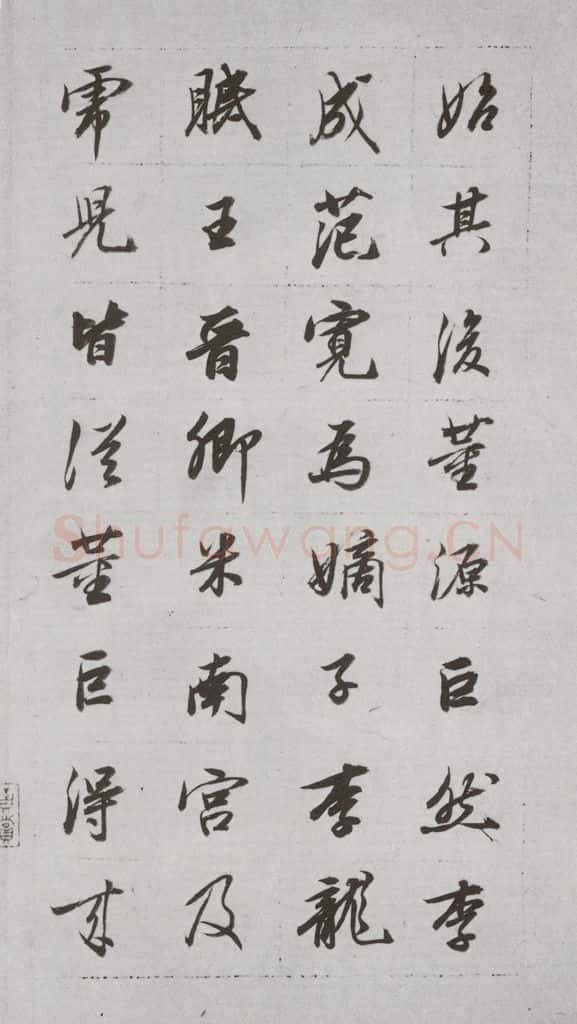 始其後董源巨然李
成范寬為嫡子李龍
眠王晉卿米南宮及
虎兒皆從董巨得來
Shufawang.CN